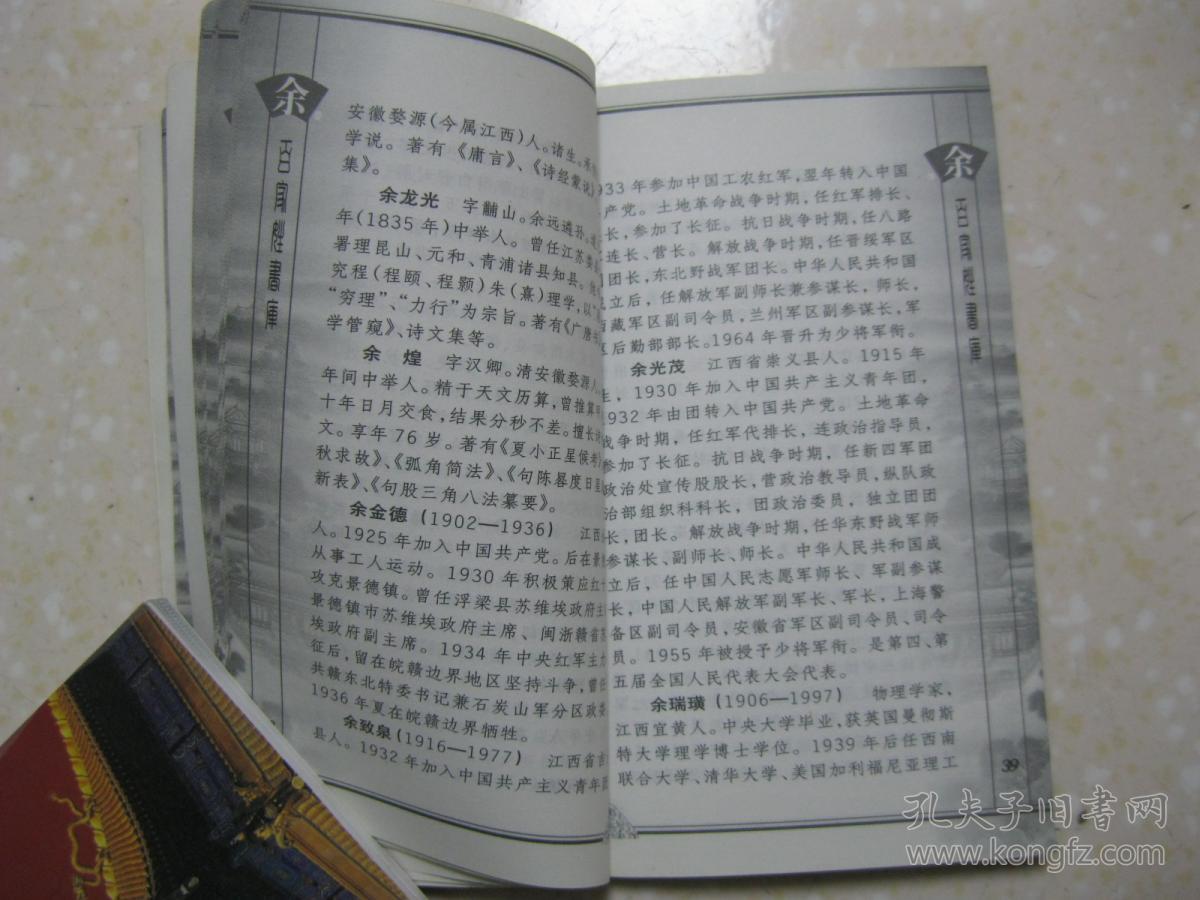 余
百家姓書庫
安徽婺源(今属江西)人。诸生。
学说。著有《庸言》、《诗经蒙说》
集》。
余龙光 字黼山。余远遴孙。
年(1835年)中举人。曾任江苏娄
署理昆山、元和、青浦诸县知县。
究程(程颐、程颢)朱(熹)理学,以“
“穷理”、“力行”为宗旨。著有《广唐
学管窥》、诗文集等。
余 煌 字汉卿。清安徽婺源人
年间中举人。精于天文历算,曾推算
十年日月交食,结果分秒不差。擅长
文。享年76岁。著有《夏小正星候考
秋求故》、《弧角简法》、《句陈晷度日星
新表》、《句股三角八法纂要》。
余金德(1902—1936) 江西
人。1925年加入中国共产党。后在景
从事工人运动。1930年积极策应红十
攻克景德镇。曾任浮梁县苏维埃政府主
景德镇市苏维埃政府主席、闽浙赣省苏
埃政府副主席。1934年中央红军主力
征后,留在皖赣边界地区坚持斗争,曾任
共赣东北特委书记兼石炭山军分区政委
1936年夏在皖赣边界牺牲。
余致泉(1916—1977) 江西省吉
县人。1932年加入中国共产主义青年团
余
百家姓書庫
933年参加中国工农红军,翌年转入中国
产党。土地革命战争时期,任红军排长、
长,参加了长征。抗日战争时期,任八路
连长、营长。解放战争时期,任晋绥军区
团长,东北野战军团长。中华人民共和国
立后,任解放军副师长兼参谋长,师长,
西藏军区副司令员,兰州军区副参谋长,军
区后勤部部长。1964年晋升为少将军衔。
余光茂 江西省崇义县人。1915年
生,1930年加入中国共产主义青年团,
1932年由团转入中国共产党。土地革命
战争时期,任红军代排长,连政治指导员,
参加了长征。抗日战争时期,任新四军团
政治处宣传股股长,营政治教导员,纵队政
治部组织科科长,团政治委员,独立团团
长,团长。解放战争时期,任华东野战军师
参谋长、副师长、师长。中华人民共和国成
立后,任中国人民志愿军师长、军副参谋
长,中国人民解放军副军长、军长,上海警
备区副司令员,安徽省军区副司令员、司令
员。1955年被授予少将军衔。是第四、第
五届全国人民代表大会代表。
余瑞璜(1906—1997) 物理学家,
江西宜黄人。中央大学毕业,获英国曼彻斯
特大学理学博士学位。1939年后任西南
联合大学、清华大学、美国加利福尼亚理工
39
孔夫子旧书网
www.kongfz.com